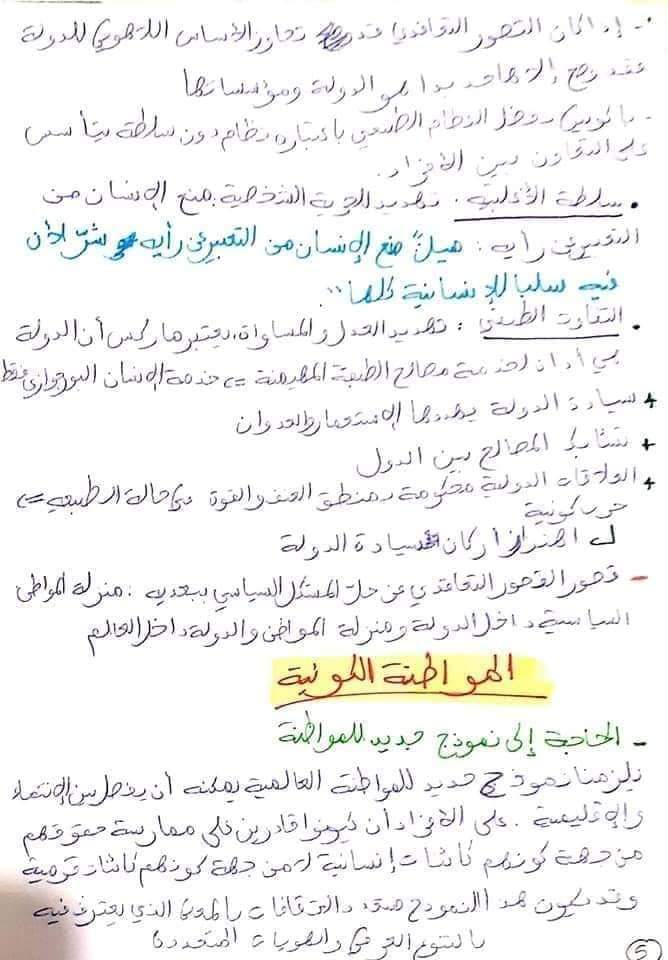 - إذا كان التصور التعاقدي قد تجاوز الأساس اللاهوتي للدولة
فقد وضع إلاها جديدا هو الدولة ومؤسساتها
- باكونين يفضل النظام الطبيعي باعتباره نظام دون سلطة يتأسس
على التعاون بين الأفراد.
• سلطة الأغلبية: تهديد الحرية الشخصية بمنع الإنسان من
التعبير عن رأيه: ميل "منع الإنسان من التعبير عن رأيه شرّ لأن
فيه سلبا للإنسانية كلها".
• التفاوت الطبقي: تهديد العدل والمساواة، يعتبر ماركس أن الدولة
هي أداة لخدمة مصالح الطبقة المهيمنة => خدمة الإنسان البورجوازي فقط
+ سيادة الدولة يهددها الاستعمار والعدوان
+ تشابك المصالح بين الدول
+ العلاقات الدولية محكومة بمنطق العنف والقوة هي حالة الطبيعي =>
حرب كونية
ل اهتزاز أركان سيادة الدولة
- قصور التصور التعاقدي عن حل المشكل السياسي ببعديه: منزلة المواطن
السياسية داخل الدولة ومنزلة المواطن والدولة داخل العالم
المواطنة الكونية
- الحاجة إلى نموذج جديد للمواطنة
يلزمنا نموذج جديد للمواطنة العالمية يمكنه أن يفصل بين الانتماء
والإقليمية. على الأفراد أن يكونوا قادرين على ممارسة حقوقهم
من جهة كونهم كائنات إنسانية لا من جهة كونهم كائنات قومية
وقد يكون هذا النموذج متعدد الثقافات بالمعنى الذي يعترف فيه
بالتنوع العرقي والهويات المتعددة
5